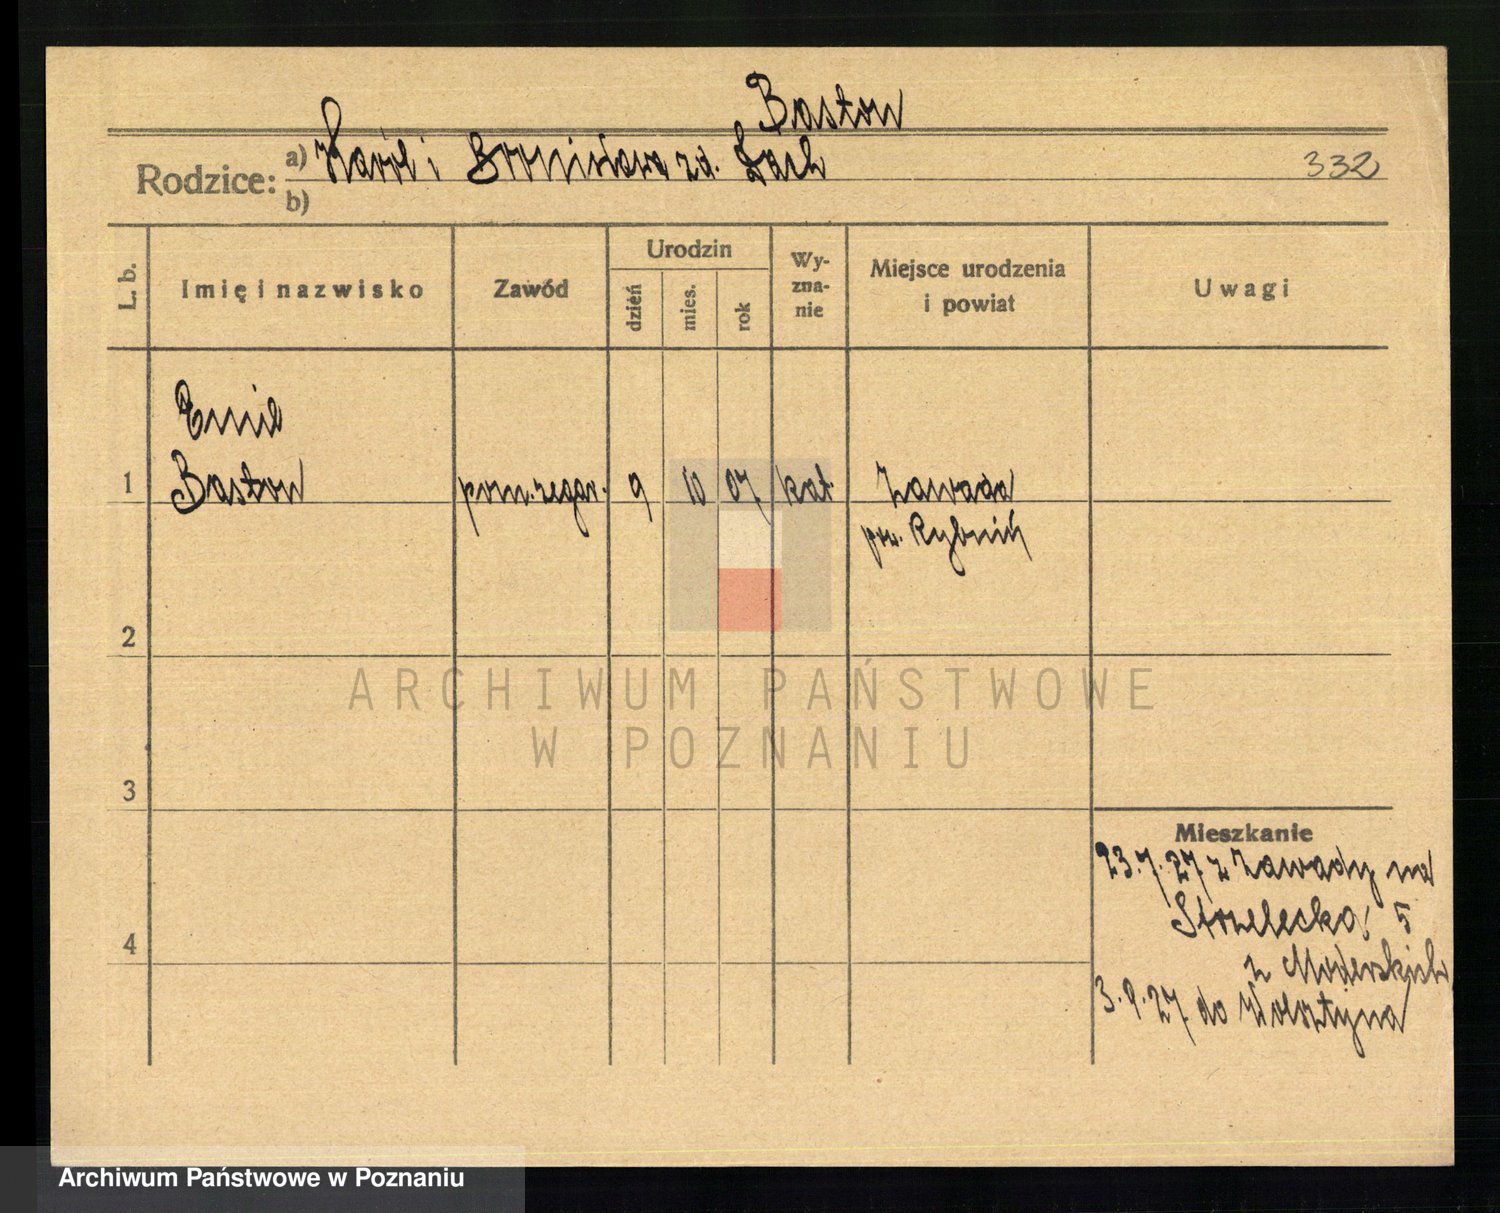 Baston
Rodzice: a) Karól i Bronisława zd. Lach
332
b)
L. b.
Imię i nazwisko
Zawód
Urodzin
dzień
mies.
rok
Wy-
zna-
nie
Miejsce urodzenia
i powiat
Uwagi
Emil
1 Baston pom. zegar. 9 10 07 kat. Zawada
pow. Rybnik
2
ARCHIWUM PAŃSTWOWE
W POZNANIU
3
Mieszkanie
23.7.27 z Zawady na
Strzelecka 5
4
z Moderskich
3.9.27 do Wolsztyna
Archiwum Państwowe w Poznaniu